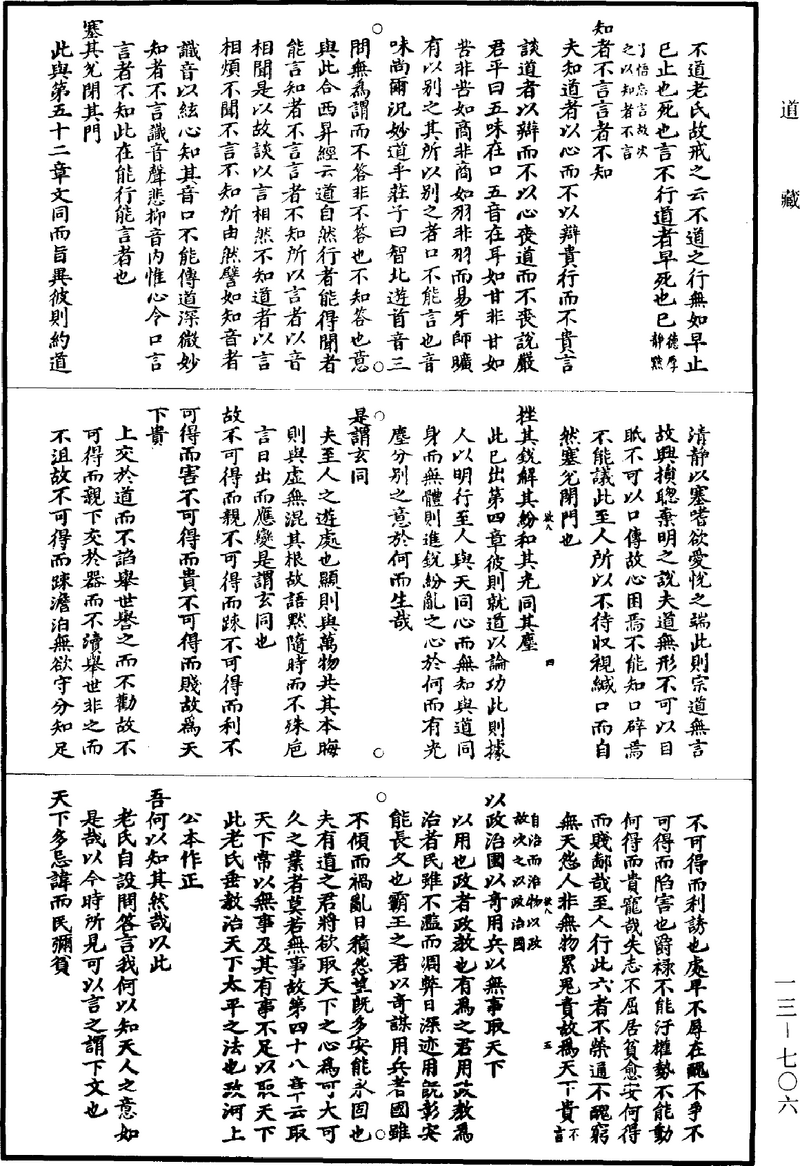 道藏
不道老氏故戒之云不道之行無如早止
已止也死也言不行道者早死也已德厚靜黙
了悟忘言故次之以知者不言
知者不言言者不知
夫知道者以心而不以辯貴行而不貴言
談道者以辯而不以心喪道而不喪說嚴
君平曰五味在口五音在耳如甘非甘如
苦非苦如商非商如羽非羽而易牙師曠
有以別之其所以別之者口不能言也音
味尚爾況妙道乎莊子曰智北遊首音三
問無為謂而不答非不答也不知答也意
與此合西昇經云道自然行者能得聞者
能言知者不言言者不知所以言者以音
相聞是以故談以言相然不知道者以言
相煩不聞不言不知所由然譬如知音者
識音以絃心知其音口不能傳道深微妙
知者不言識音聲悲抑音內惟心令口言
言者不知此在能行能言者也
塞其兌閉其門
此與第五十二章文同而旨異彼則約道
清靜以塞嗜欲愛悅之端此則宗道無言
故興損聰棄明之說夫道無形不可以目
眂不可以口傳故心困焉不能知口辟焉
不能議此至人所以不待収視緘口而自
然塞兌閉門也
挫其銳解其紛和其光同其塵
此已出第四章彼則就道以論功此則據
人以明行至人與天同心而無知與道同
身而無體則進銳紛亂之心於何而有光
塵分別之意於何而生哉
是謂玄同
夫至人之遊處也顯則與萬物共其本晦
則與虛無混其根故語默隨時而不殊巵
言日出而應變是謂玄同也
故不可得而親不可得而踈不可得而利不
可得而害不可得而貴不可得而賤故為天
下貴
上交於道而不諂舉世譽之而不勸故不
可得而親下交於器而不瀆舉世非之而
不沮故不可得而踈澹泊無欲守分知足
不可得而利誘也處卑不辱在醜不爭不
可得而陷害也爵祿不能汙權勢不能動
何得而貴寵哉失志不屈居貧愈安何得
而賤鄙哉至人行此六者不榮通不醜窮
無天怨人非無物累鬼責故為天下貴不言
自治而治物以政故次之以政治國
以政治國以奇用兵以無事取天下
以用也政者政教也有為之君用政教為
治者民雖不濫而凋弊日深迹用既彰安
能長久也霸王之君以奇謀用兵者國雖
不傾而禍亂日積怨望既多安能永固也
夫有道之君將欲取天下之心為可大可
久之業者莫若無事故第四十八章云取
天下常以無事及其有事不足以取天下
此老氏垂教治天下太平之法也政河上
公本作正
吾何以知其然哉以此
老氏自設問答言我何以知天人之意如
是哉以今時所見可以言之謂下文也
天下多忌諱而民彌貧
一三－七〇六